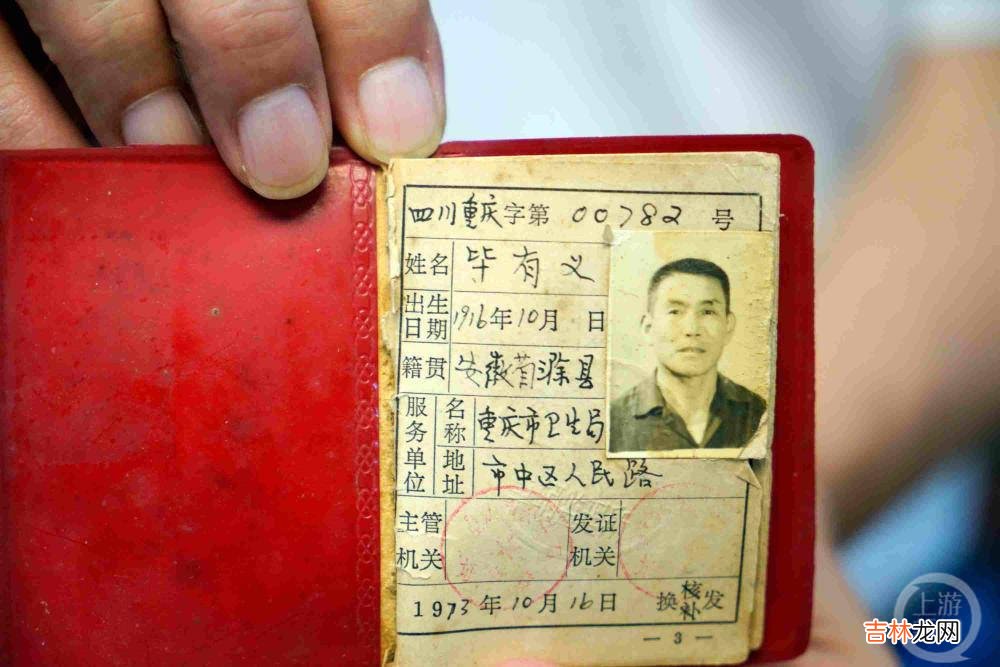 四川重庆字第 00782 号
姓名 毕有义
出生日期 1916年10月 日
籍贯 安徽省滁县
服务单位 名称 重庆市卫生局
地址 市中区人民路
主管机关 发证机关
1973年10月16日 换核补发
— 3 —
上游
吉林龙网